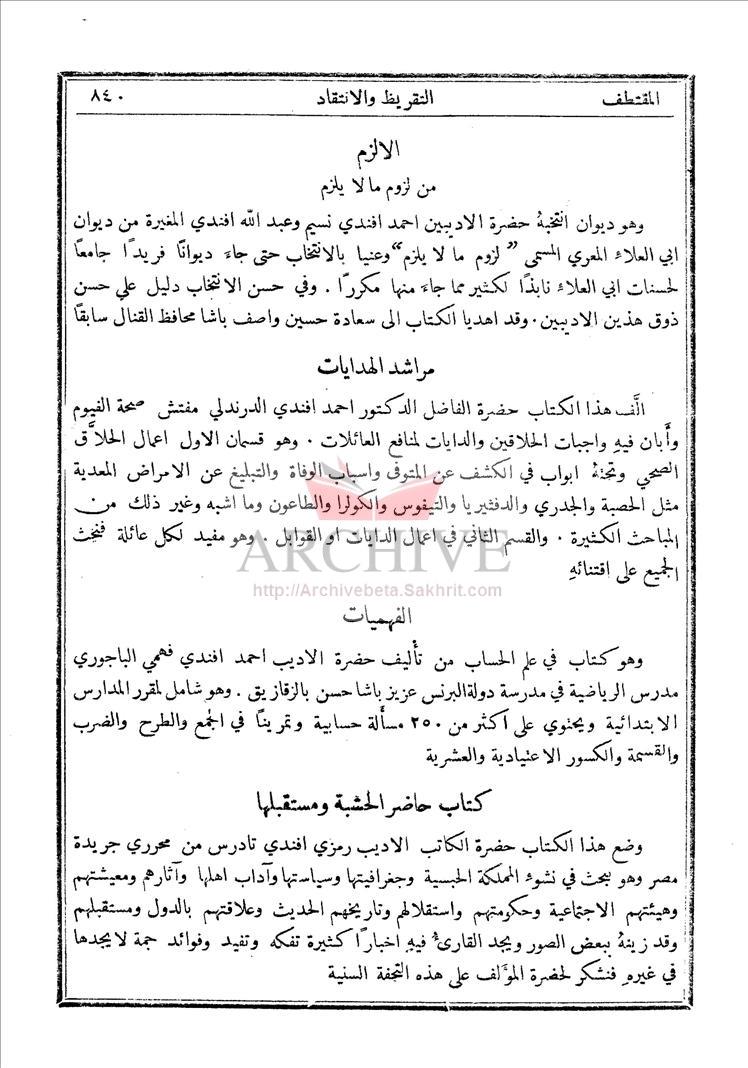 المقتطف التقريظ والانتقاد ٨٤٠
الالزم
من لزوم ما لا يلزم
وهو ديوان انتخبهُ حضرة الاديبين احمد افندي نسيم وعبد الله افندي المغيرة من ديوان
ابي العلاء المعري المسمى ” لزوم ما لا يلزم“ وعنيا بالانتخاب حتى جاءَ ديوانًا فريدًا جامعًا
لحسنات ابي العلاء نابذًا لكثير مما جاءَ منها مكررًا . وفي حسن الانتخاب دليل على حسن
ذوق هذين الاديبين . وقد اهديا الكتاب الى سعادة حسين واصف باشا محافظ القنال سابقًا
مراشد الهدايات
الَّف هذا الكتاب حضرة الفاضل الدكتور احمد افندي الدرندلي مفتش صحة الفيوم
وأَبان فيهِ واجبات الحلاقين والدايات لمنافع العائلات . وهو قسمان الاول اعمال الحلاَّق
الصحي وتحتهُ ابواب في الكشف عن المتوفى واسباب الوفاة والتبليغ عن الامراض المعدية
مثل الحصبة والجدري والدفثيريا والتيفوس والكولرا والطاعون وما اشبه وغير ذلك من
المباحث الكثيرة . والقسم الثاني في اعمال الدايات او القوابل . وهو مفيد لكل عائلة فنحث
الجميع على اقتنائهِ
ARCHIVE
http://Archivebeta.Sakhrit.com
الفهميات
وهو كتاب في علم الحساب من تأْليف حضرة الاديب احمد افندي فهمي الباجوري
مدرس الرياضية في مدرسة دولة البرنس عزيز باشا حسن بالزقازيق . وهو شامل لمقرر المدارس
الابتدائية ويحتوي على اكثر من ٢٥٠ مسأَلة حسابية وتمرينًا في الجمع والطرح والضرب
والقسمة والكسور الاعتيادية والعشرية
كتاب حاضر الحبشة ومستقبلها
وضع هذا الكتاب حضرة الكاتب الاديب رمزي افندي تادرس من محرري جريدة
مصر وهو يبحث في نشوء المملكة الحبسية وجغرافيتها وسياستها وآداب اهلها وآثارهم ومعيشتهم
وهيئتهم الاجتماعية وحكومتهم واستقلالهم وتاريخهم الحديث وعلاقتهم بالدول ومستقبلهم
وقد زينهُ ببعض الصور ويجد القارئُ فيهِ اخبارًا كثيرة تفكه وتفيد وفوائد جمة لا يجدها
في غيرهِ فنشكر لحضرة المؤلف على هذه التحفة السنية